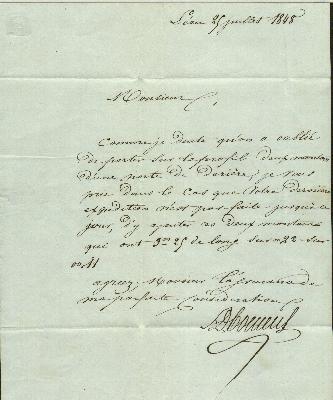 25 juillet 1848
Monsieur,
Comme je doute qu'on a oublié
de porter sur le profil deux montans
d'une porte de Derière, je vous
prie dans le cas que votre dernière
expédition n'est pas faite jusqu'à ce
jour, d'y ajouter ces deux montans
qui ont 3m 25 de long sur 22 sur
11
agréez, Monsieur l'assurance de
ma parfaite Considération